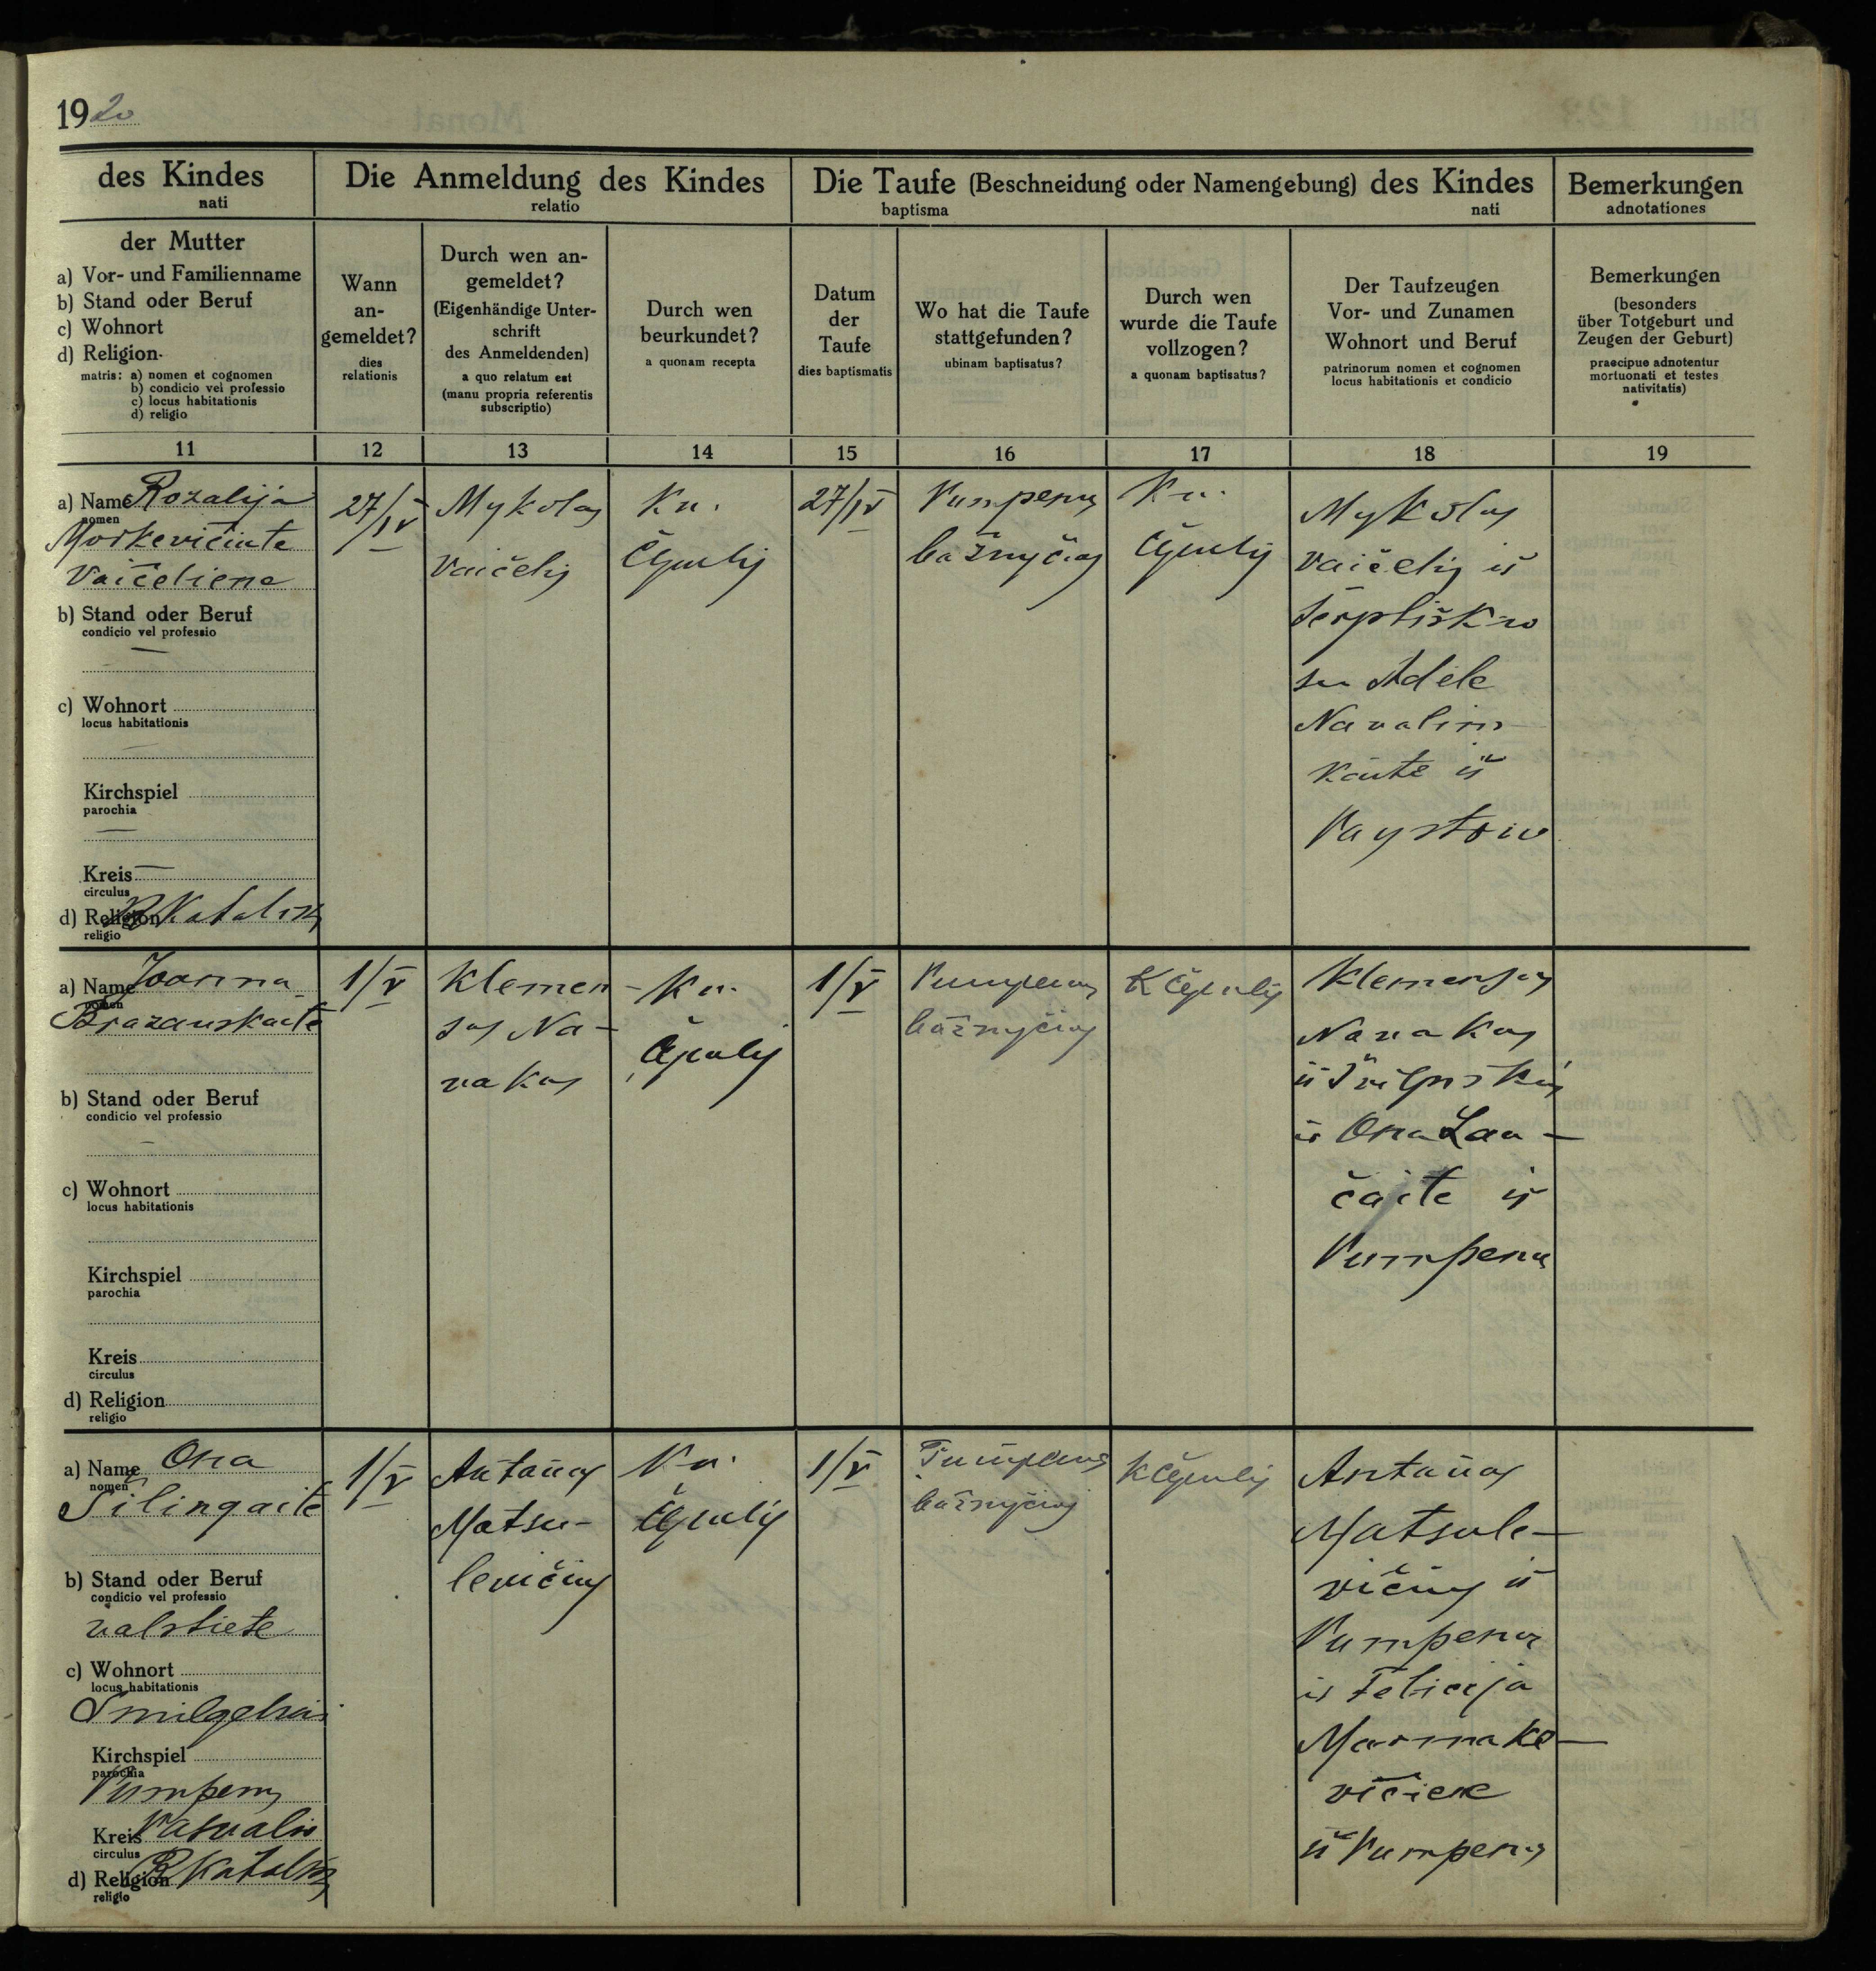 1920
des Kindes
nati
Die Anmeldung des Kindes
relatio
Die Taufe (Beschneidung oder Namengebung) des Kindes
baptisma nati
Bemerkungen
adnotationes
der Mutter
a) Vor- und Familienname
b) Stand oder Beruf
c) Wohnort
d) Religion
matris: a) nomen et cognomen
b) condicio vel professio
c) locus habitationis
d) religio
Wann
an-
gemeldet?
dies
relationis
Durch wen an-
gemeldet?
(Eigenhändige Unter-
schrift
des Anmeldenden)
a quo relatum est
(manu propria referentis
subscriptio)
Durch wen
beurkundet?
a quonam recepta
Datum
der
Taufe
dies baptismatis
Wo hat die Taufe
stattgefunden?
ubinam baptisatus?
Durch wen
wurde die Taufe
vollzogen?
a quonam baptisatus?
Der Taufzeugen
Vor- und Zunamen
Wohnort und Beruf
patrinorum nomen et cognomen
locus habitationis et condicio
Bemerkungen
(besonders
über Totgeburt und
Zeugen der Geburt)
praecipue adnotentur
mortuonati et testes
nativitatis)
11 12 13 14 15 16 17 18 19
a) Name Rozalija
nomen
Morkevičiute
Vaičeliene
b) Stand oder Beruf
condicio vel professio
—
c) Wohnort
locus habitationis
—
Kirchspiel
parochia
—
Kreis —
circulus
d) Religion R Katalikų
religio
27/IV
Mykolas
Vaičelis
Kn.
27/IV
Pumpenų
bažnyčioj
Kn.
Mykolas
Vaičelis iš
su Adele
Navalins
kaite iš
a) Name Joanna
nomen
Brazauskaite
b) Stand oder Beruf
condicio vel professio
—
c) Wohnort
locus habitationis
Kirchspiel
parochia
Kreis
circulus
d) Religion
religio
1/V
Klemen-
sas No-
vakas
Kn.
1/V
Pumpenų
bažnyčioj
K
Klemensas
Novakas
ir Ona Lau-
čaite iš
Pumpenų
a) Name Ona
nomen
Šilingaite
b) Stand oder Beruf
condicio vel professio
valstiete
c) Wohnort
locus habitationis
Smilgeliai
Kirchspiel
parochia
Pumpenų
Kreis
circulus
d) Religion R Katalikų
religio
1/V
Antanas
Matsu-
levičius
Kn.
1/V
Pumpenų
bažnyčioj
K
Antanas
Matsule-
vičius iš
Pumpenų
ir Felicija
Marmake-
vičiene
iš Pumpenų